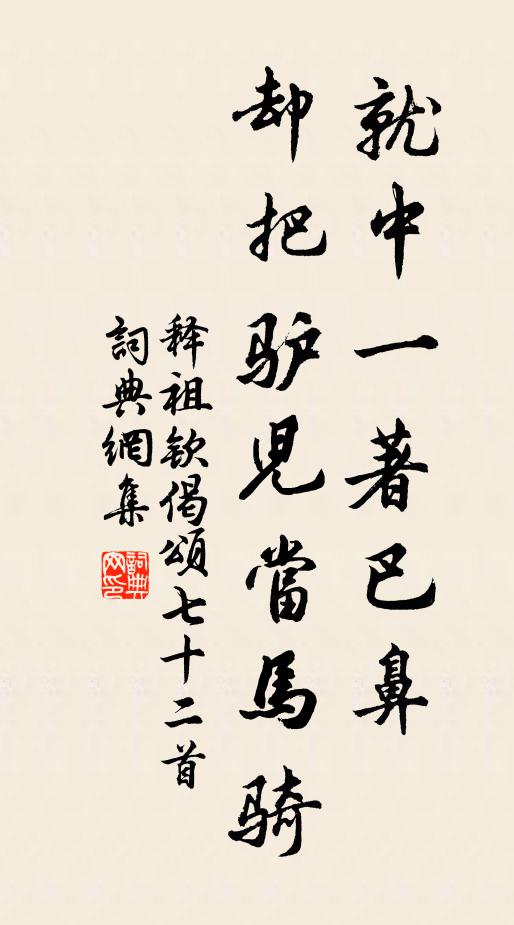 就中一著巴鼻
却把驴児當馬騎
释祖钦偈頌七十二首
詞典網集
詞典網印